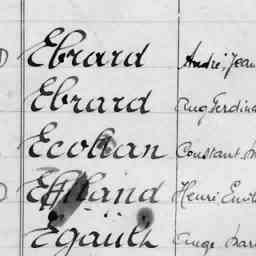 Ebrard André, Jean
Ebrard Aug Ferdina
Ecollan Constant
Henri Emil
Egault Ange Mar